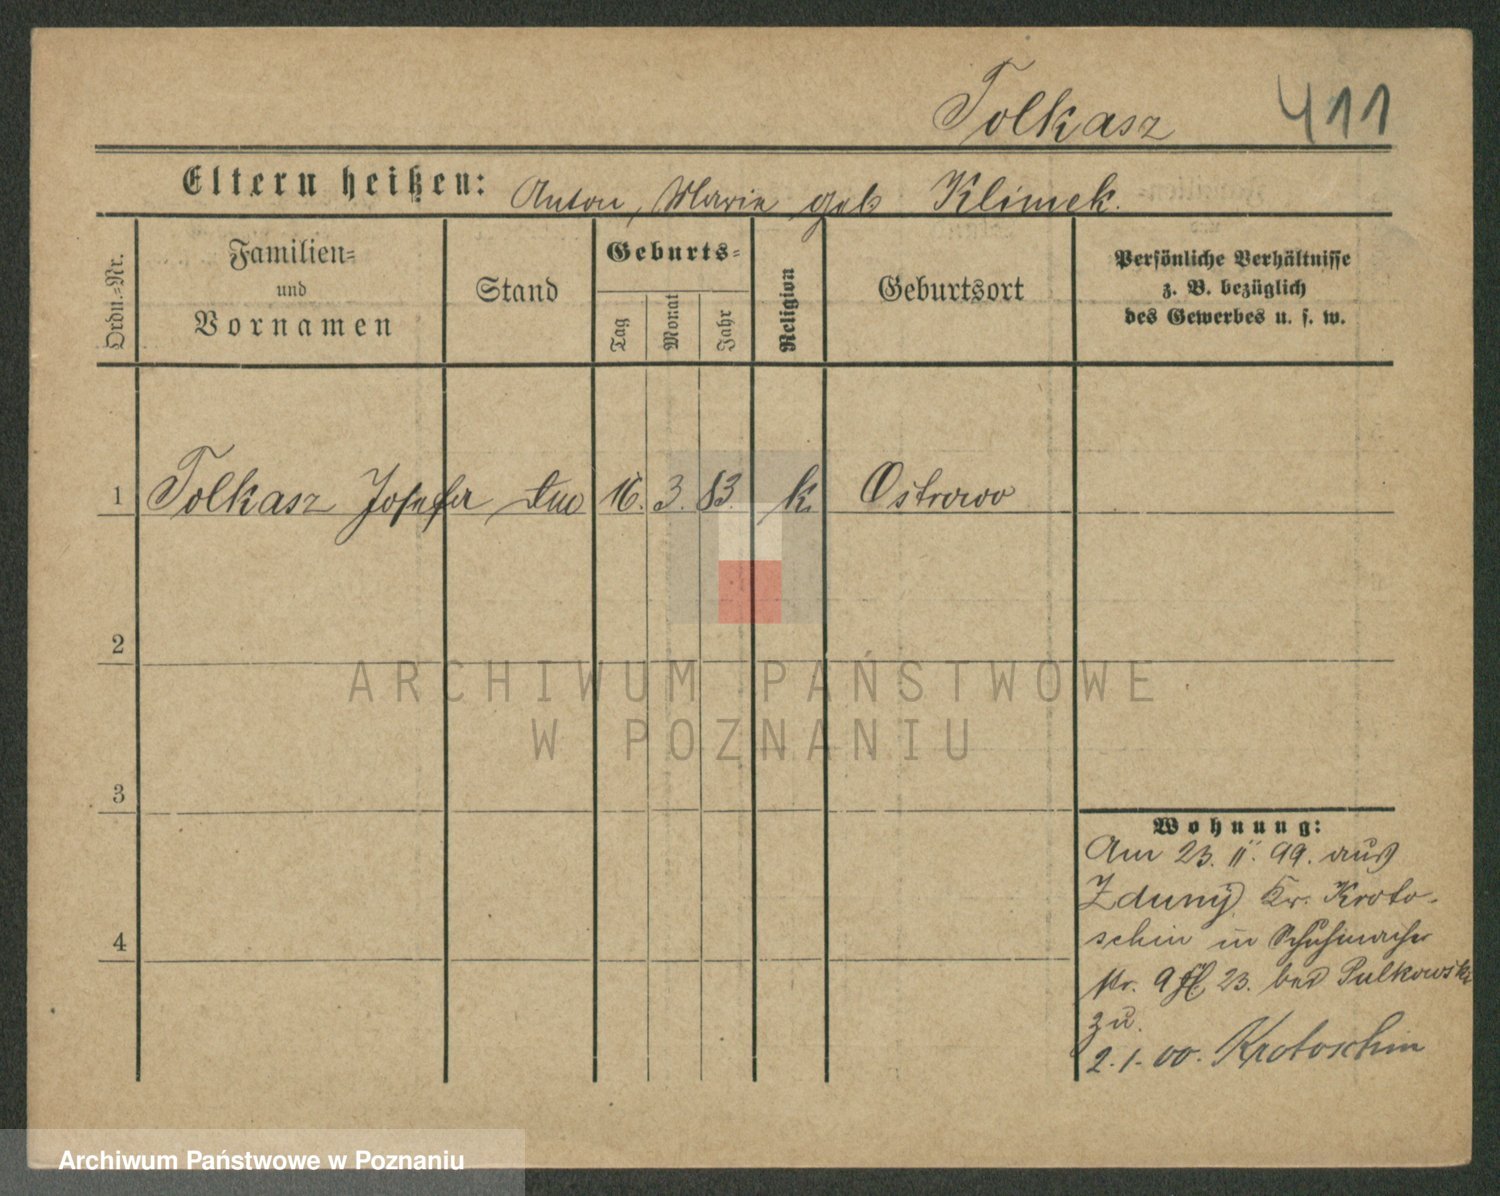 Tolkasz
411
Eltern heißen: Anton, Marie geb Klimek.
Ordn.=Nr.
Familien=
und
Vornamen
Stand
Geburts=
Tag
Monat
Jahr
Religion
Geburtsort
Persönliche Verhältnisse
z. B. bezüglich
des Gewerbes u. s. w.
1 Tolkasz Josefa 16. 3. 83. k. Ostrowo
2
3
4
Wohnung:
Am 23. 11. 99. aus
Zduny Kr. Kroto-
schin in
Nr. 9 23. bei Pulkowski
zu.
2.1.00. Krotoschin
ARCHIWUM PAŃSTWOWE
W POZNANIU
Archiwum Państwowe w Poznaniu